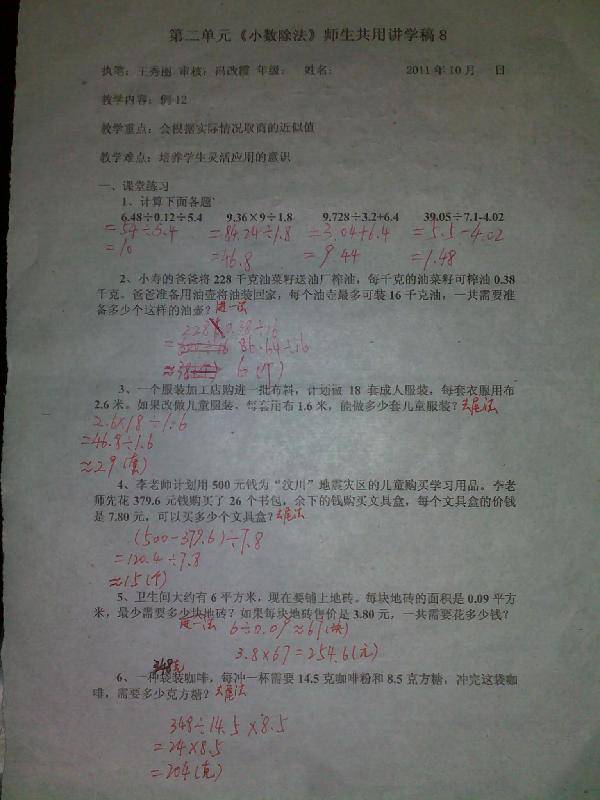 第二单元《小数除法》师生共用讲学稿8
执笔：王秀丽 审核：冯改霞 年级： 姓名： 2011年10月 日
教学内容：例12
教学重点：会根据实际情况取商的近似值
教学难点：培养学生灵活应用的意识
一、课堂练习
1、计算下面各题
6.48÷0.12÷5.4 9.36×9÷1.8 9.728÷3.2+6.4 39.05÷7.1-4.02
=54÷5.4 =84.24÷1.8 =3.04+6.4 =5.5-4.02
=10 =46.8 =9.44 =1.48
2、小寿的爸爸将228千克油菜籽送油厂榨油，每千克的油菜籽可榨油0.38
千克。爸爸准备用油壶将油装回家，每个油壶最多可装16千克油，一共需要准
备多少个这样的油壶？进一法
228×0.38÷16
= 86.64÷16
≈ 6(个)
3、一个服装加工店购进一批布料，计划做18套成人服装，每套衣服用布
2.6米。如果改做儿童服装，每套用布1.6米，能做多少套儿童服装？去尾法
2.6×18÷1.6
=46.8÷1.6
≈29(套)
4、李老师计划用500元钱为“汶川”地震灾区的儿童购买学习用品。李老
师先花379.6元钱购买了26个书包，余下的钱购买文具盒，每个文具盒的价钱
是7.80元，可以买多少个文具盒？去尾法
(500-379.6)÷7.8
=120.4÷7.8
≈15(个)
5、卫生间大约有6平方米，现在要铺上地砖。每块地砖的面积是0.09平方
米，最少需要多少块地砖？如果每块地砖售价是3.80元，一共需要花多少钱？
进一法 6÷0.09≈67(块)
3.8×67=254.6(元)
348克
6、一种袋装咖啡，每冲一杯需要14.5克咖啡粉和8.5克方糖，冲完这袋咖
啡，需要多少克方糖？去尾法
348÷14.5×8.5
=24×8.5
=204(克)